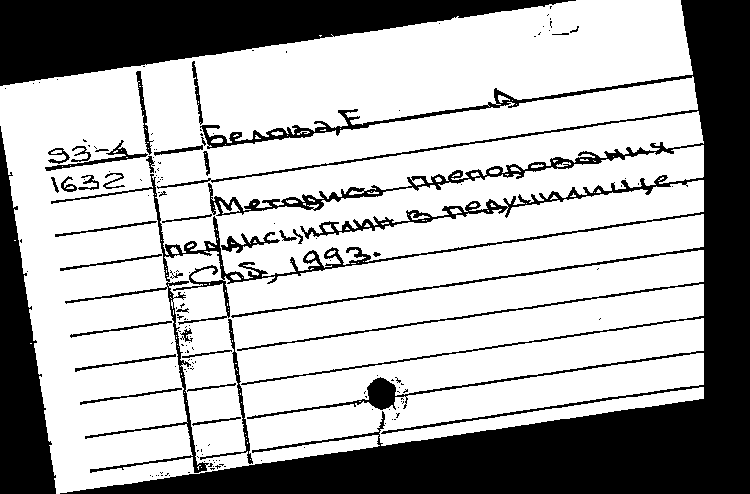 93-4 Белова, Е А
1632
Методика преподавания
педдисциплин в педучилище.
- Спб, 1993.